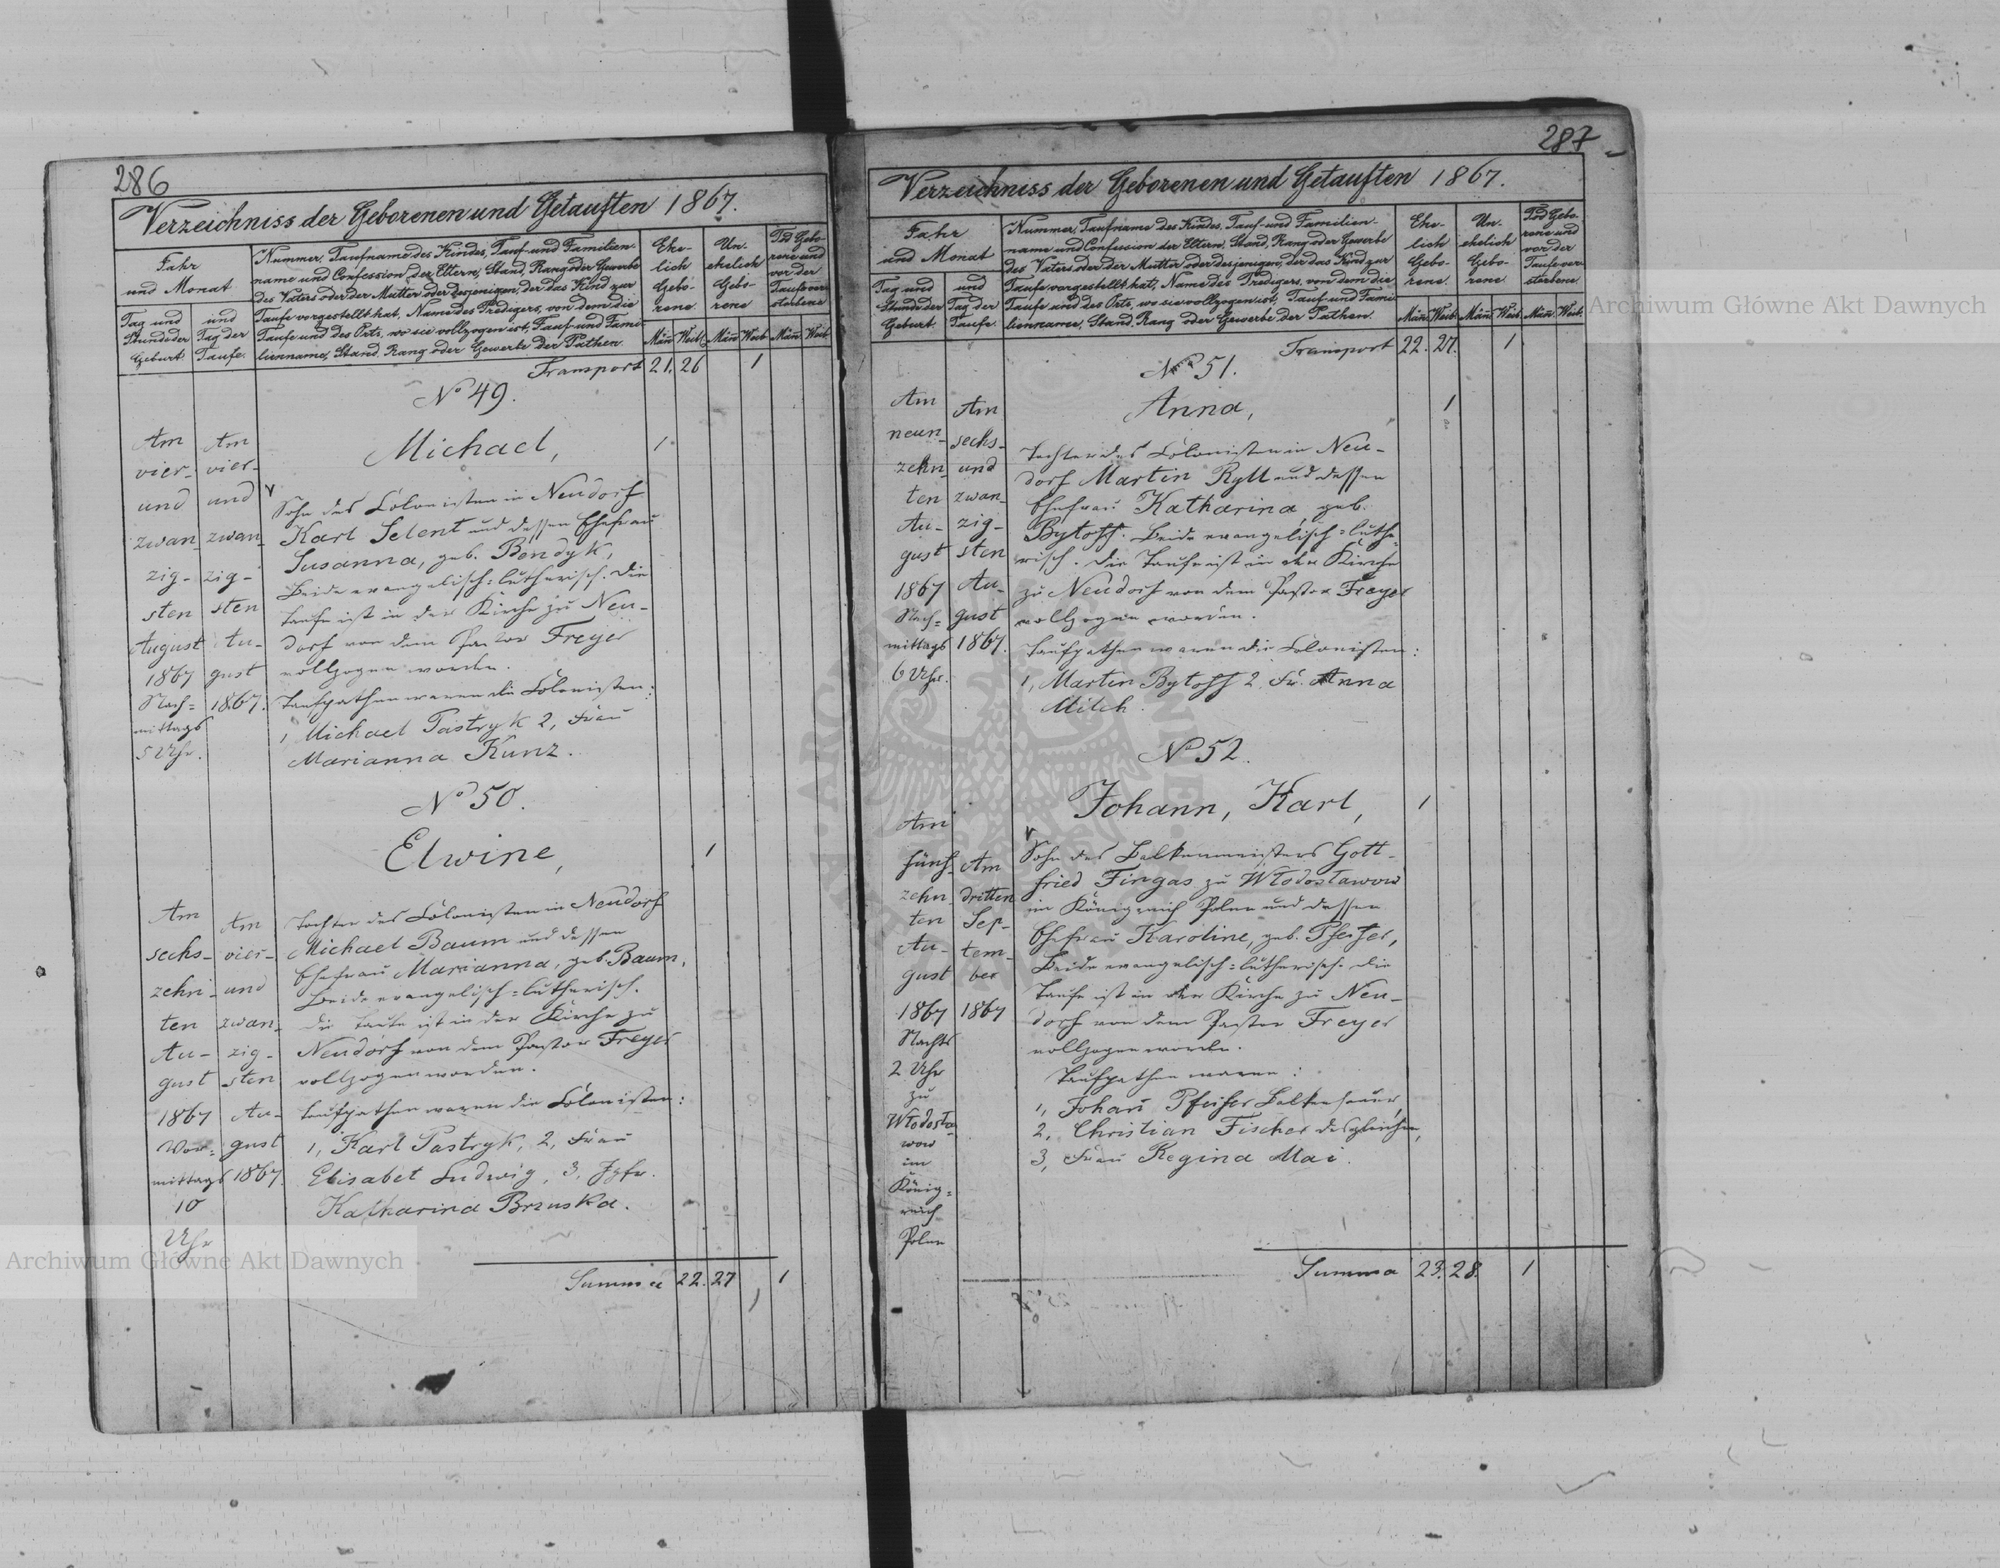 286
Verzeichniss der Geborenen und Getauften 1867.
Jahr
und Monat
Tag und
Stunde der
Geburt.
und
Tag der
Taufe.
Nummer, Taufname des Kindes, Tauf- und Familien-
name und Confession der Eltern, Stand, Rang oder Gewerbe
des Vaters oder der Mutter oder desjenigen, der das Kind zur
Taufe vorgestellt hat, Name des Predigers, von dem die
Taufe und des Orts, wo sie vollzogen ist, Tauf- und Fami-
lienname, Stand, Rang oder Gewerbe der Pathen.
Ehe-
lich
Gebo-
rene
Un-
ehelich
Gebo-
rene
Tod Gebo-
rene und
vor der
Taufe ver-
storbene
Män. Weib. Män. Weib. Män. Weib.
Transport 21. 26 1
No 49.
Am
vier-
und
zwan-
zig-
sten
August
1867
Nach=
mittags
5 Uhr.
Am
vier-
und
zwan-
zig-
sten
Au-
gust
1867.
Michael, 1
Sohn des Colonisten in Neudorf
Karl Selent und dessen Ehefrau
Susanna, geb. Bendyk,
Beide evangelisch=lutherisch. Die
Taufe ist in der Kirche zu Neu-
dorf von dem Pastor Freyer
vollzogen worden.
Taufpathen waren die Colonisten:
1, Michael Pastryk 2, Frau
Marianna Kunz.
No 50.
Elwine, 1
Am
sechs-
zehn-
ten
Au-
gust
1867
Vor=
mittags
10
Uhr
Am
vier-
und
zwan-
zig-
sten
Au-
gust
1867.
Tochter des Colonisten in Neudorf
Michael Baum und dessen
Ehefrau Marianna, geb. Baum,
Beide evangelisch=lutherisch.
Die Taufe ist in der Kirche zu
Neudorf von dem Pastor Freyer
vollzogen worden.
Taufpathen waren die Colonisten:
1, Karl Pastryk, 2, Frau
Elisabet Ludwig, 3, Jgfr.
Katharina Brzuska.
Summa 22. 27 1
287
Verzeichniss der Geborenen und Getauften 1867.
Jahr
und Monat
Tag und
Stunde der
Geburt.
und
Tag der
Taufe.
Nummer, Taufname des Kindes, Tauf- und Familien-
name und Confession der Eltern, Stand, Rang oder Gewerbe
des Vaters oder der Mutter oder desjenigen, der das Kind zur
Taufe vorgestellt hat, Name des Predigers, von dem die
Taufe und des Orts, wo sie vollzogen ist, Tauf- und Fami-
lienname, Stand, Rang oder Gewerbe der Pathen.
Ehe-
lich
Gebo-
rene
Un-
ehelich
Gebo-
rene
Tod Gebo-
rene und
vor der
Taufe ver-
storbene
Män. Weib. Män. Weib. Män. Weib.
Transport 22. 27. 1
No 51.
Am
neun-
zehn-
ten
Au-
gust
1867
Nach=
mittags
6 Uhr.
Am
sechs-
und
zwan-
zig-
sten
Au-
gust
1867.
Anna, 1
Tochter des Colonisten in Neu-
dorf Martin Ryll und dessen
Ehefrau Katharina, geb.
Bytoff. Beide evangelisch=luthe-
risch. Die Taufe ist in der Kirche
zu Neudorf von dem Pastor Freyer
vollzogen worden.
Taufpathen waren die Colonisten:
1, Martin Bytoff 2, Fr. Anna
Milch.
No 52.
Johann, Karl, 1
Am
fünf-
zehn-
ten
Au-
gust
1867
Nachts
2 Uhr
zu
Włodosła-
wow
im
König=
reich
Polen
Am
dritten
Sep-
tem-
ber
1867
Sohn des Balkenmeisters Gott-
fried Fingas zu Włodosławow
im Königreich Polen und dessen
Ehefrau Karoline, geb. Pfeifer,
Beide evangelisch=lutherisch. Die
Taufe ist in der Kirche zu Neu-
dorf von dem Pastor Freyer
vollzogen worden.
Taufpathen waren:
1, Johan̄ Pfeifer Balkenhauer,
2, Christian Fischer desgleichen,
3, Frau Regina Mai.
Summa 23. 28. 1
Archiwum Główne Akt Dawnych
Archiwum Główne Akt Dawnych